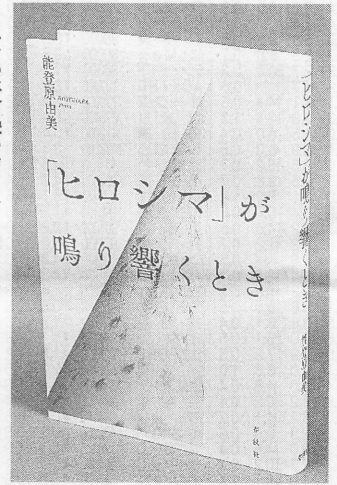 能登原由美
NOTOHARA
Yumi
「ヒロシマ」が
鳴り響くとき
春秋社
「ヒロシマ」が鳴り響くとき
能登原由美